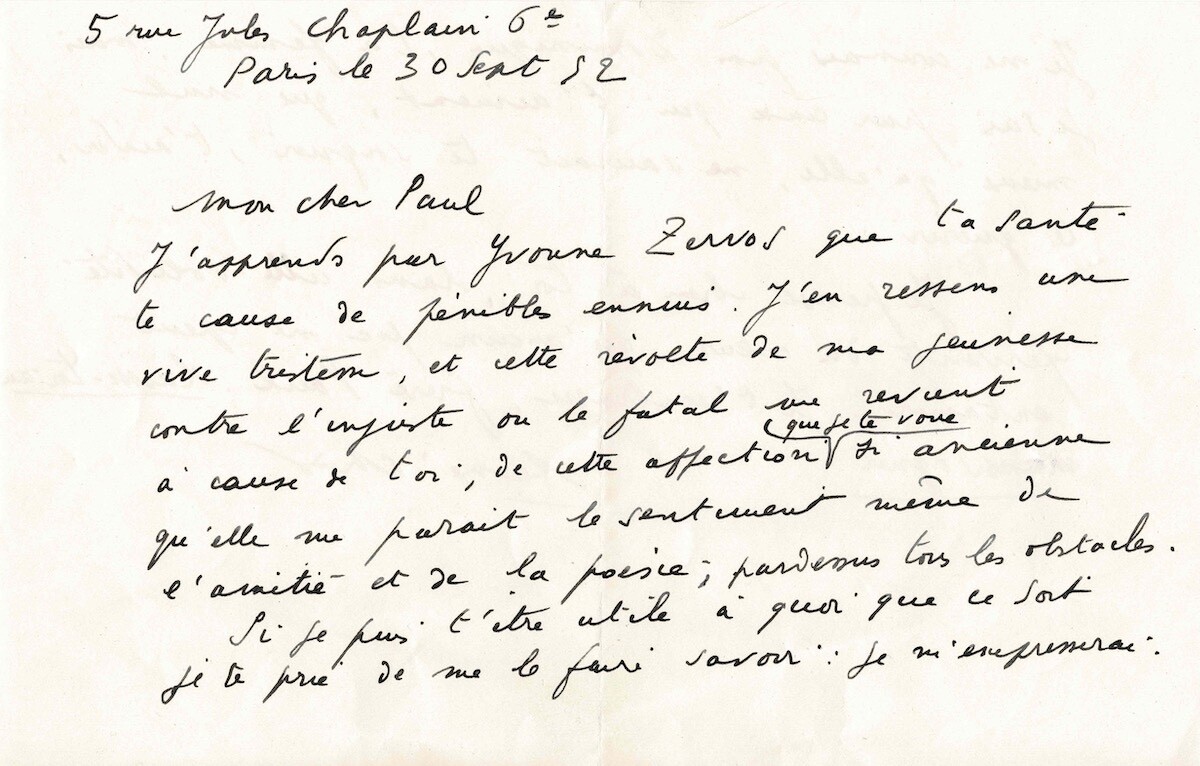 5 rue Jules Chaplain 6e
Paris le 30 Sept 52
Mon cher Paul
J'apprends par Yvonne Zervos que ta santé
te cause de pénibles ennuis. J'en ressens une
vive tristesse, et cette révolte de ma jeunesse
contre l'injuste ou le fatal me revient
(que je te voue
à cause de toi, de cette affection si ancienne
qu'elle me parait le sentiment même de
l'amitié et de la poésie, pardessus tous les obstacles.
Si je puis t'être utile à quoi que ce soit
je te prie de me le faire savoir : je m'empresserai.